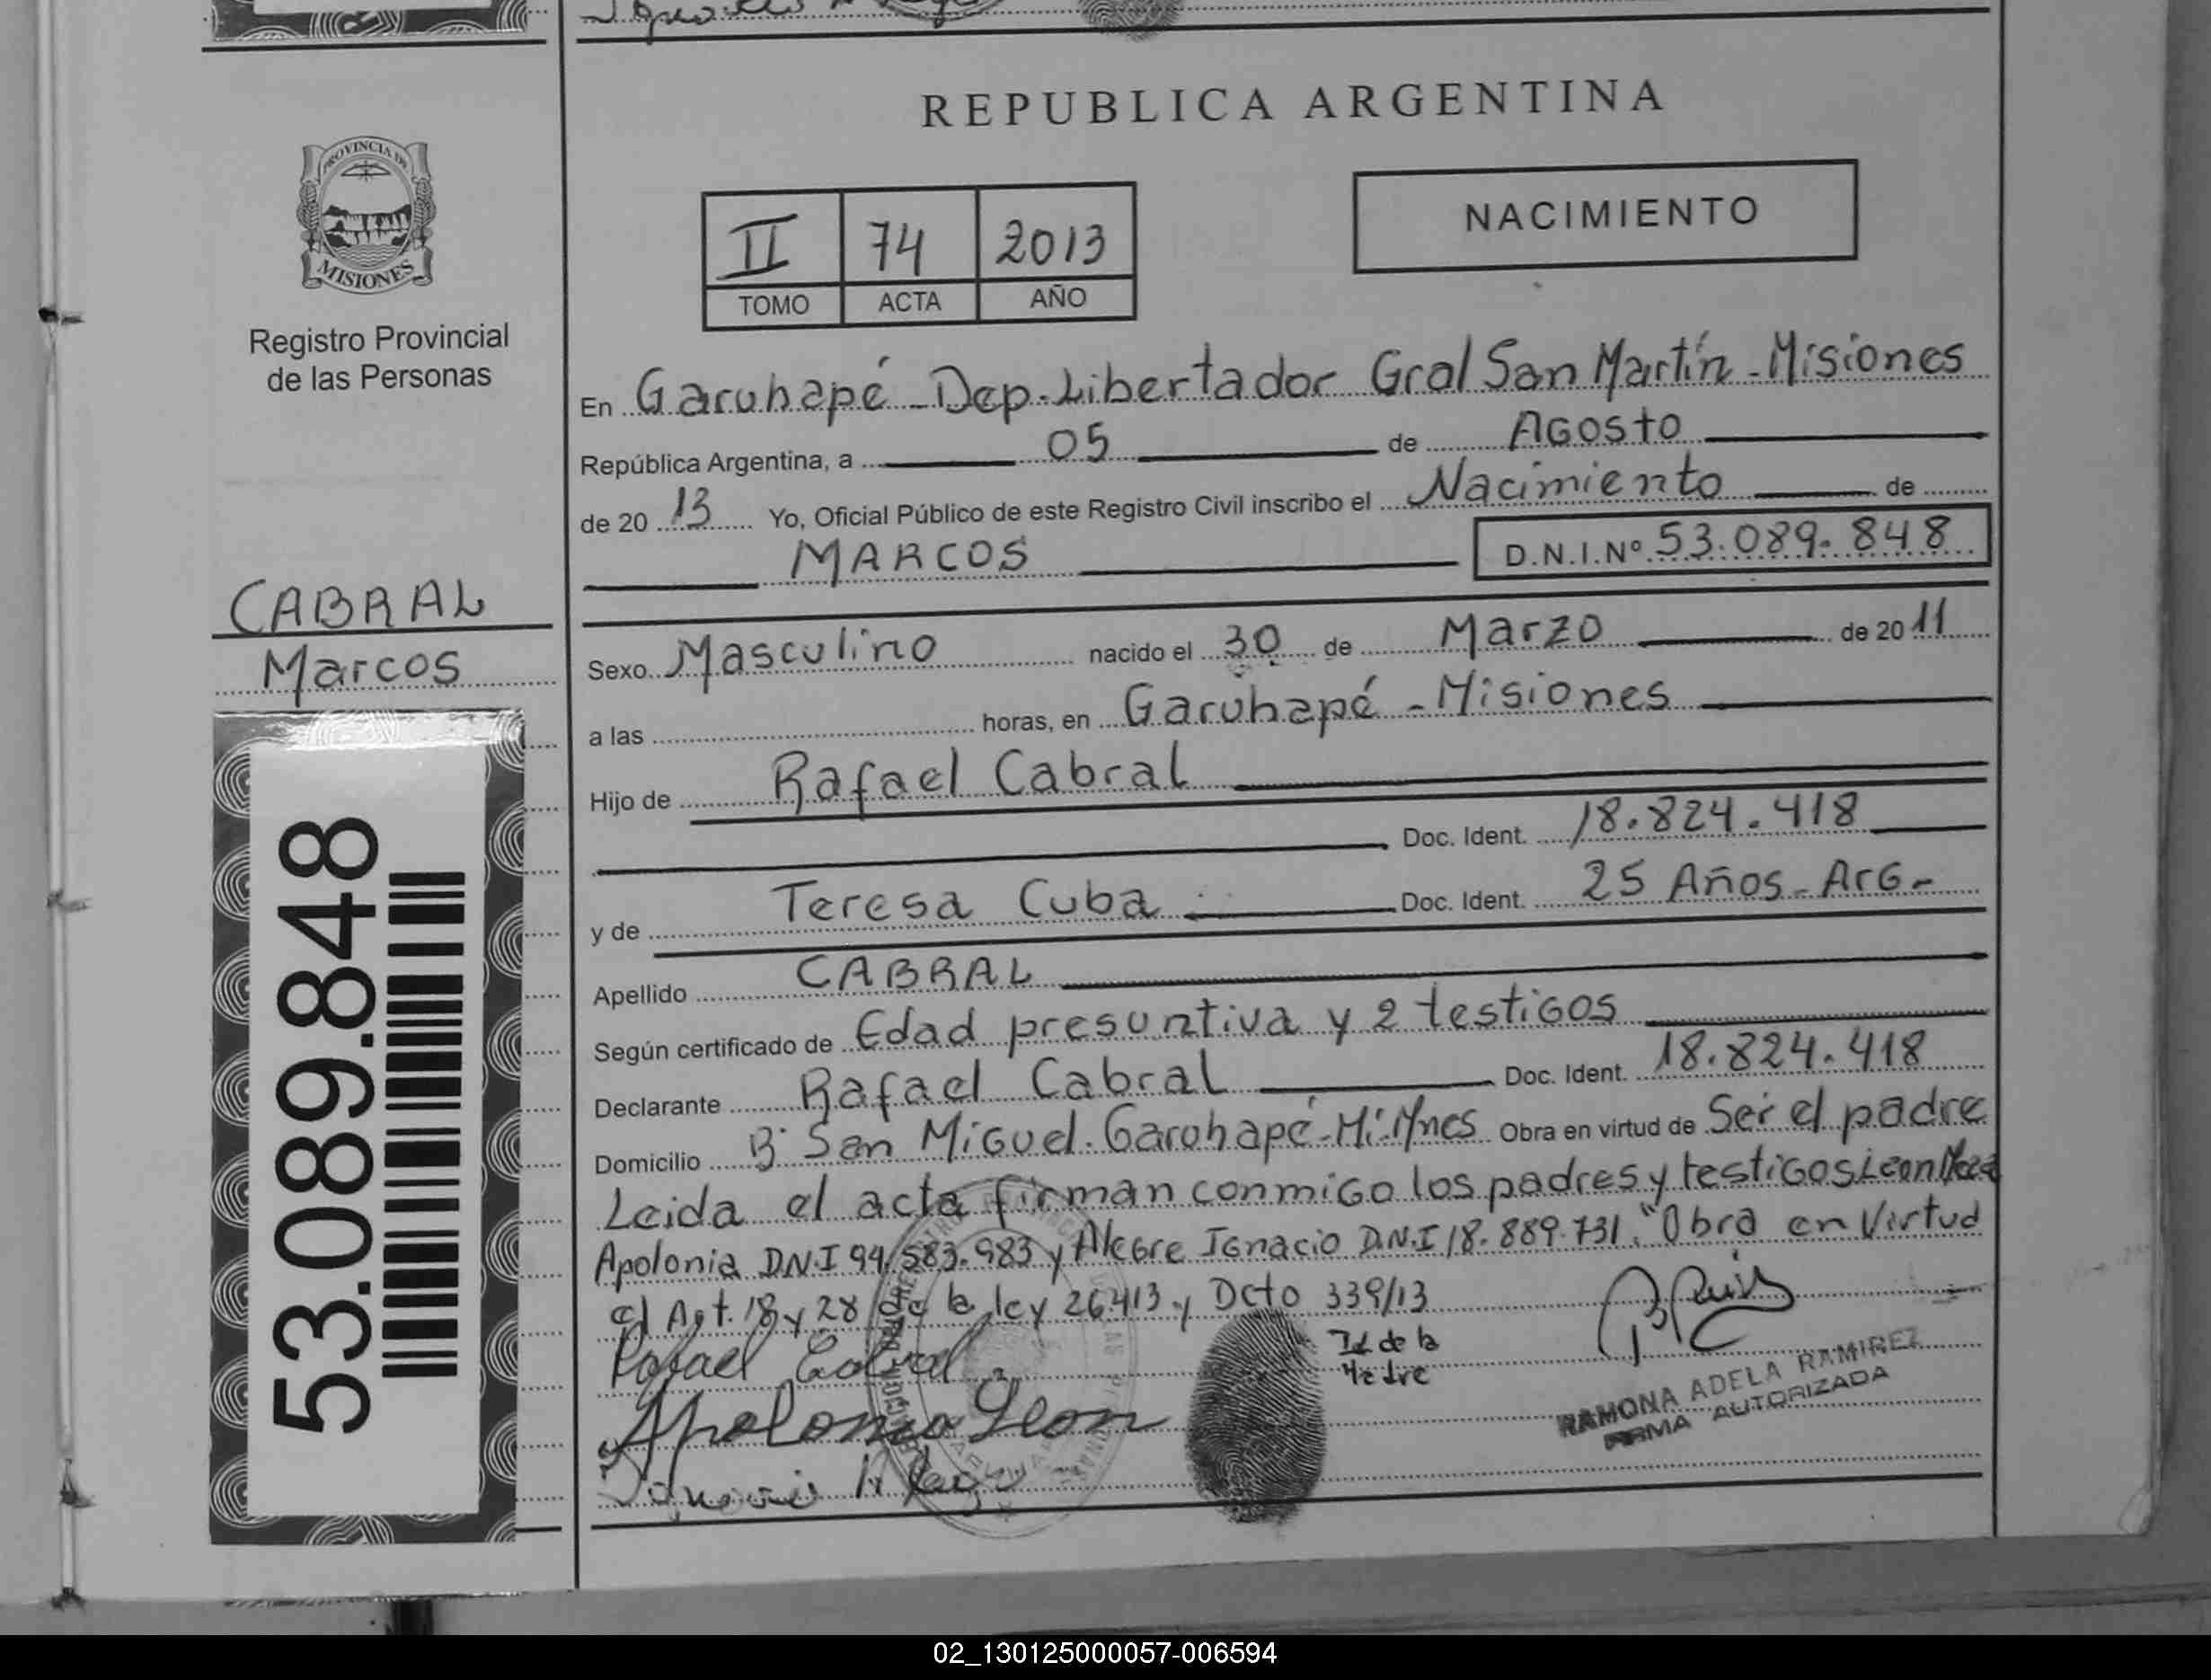 REPUBLICA ARGENTINA
PROVINCIA DE
MISIONES
Registro Provincial
de las Personas
NACIMIENTO
II 74 2013
TOMO ACTA AÑO
En Garuhapé - Dep. Libertador Gral San Martín - Misiones
República Argentina, a 05 de Agosto
de 2013 Yo, Oficial Público de este Registro Civil inscribo el Nacimiento de
MARCOS D.N.I.Nº 53.089.848
CABRAL
Marcos
Sexo Masculino nacido el 30 de Marzo de 2011
a las horas, en Garuhapé - Misiones
Hijo de Rafael Cabral
Doc. Ident. 18.824.418
y de Teresa Cuba Doc. Ident. 25 Años - Arg -
Apellido CABRAL
Según certificado de Edad presuntiva y 2 testigos
Declarante Rafael Cabral Doc. Ident. 18.824.418
Domicilio Bº San Miguel. Garuhapé - Mi-Mnes Obra en virtud de Ser el padre
Leida el acta firman conmigo los padres y testigos Leon
Apolonia D.N.I 94.583.983 y Alegre Ignacio D.N.I 18.889.731. "Obra en Virtud
el Art. 18 y 28 de la ley 26413 y Dcto 339/13
Rafael Cabral
Id de la
Madre
Apolonia Leon
RAMONA ADELA RAMIREZ
FIRMA AUTORIZADA
53.089.848
02_130125000057-006594